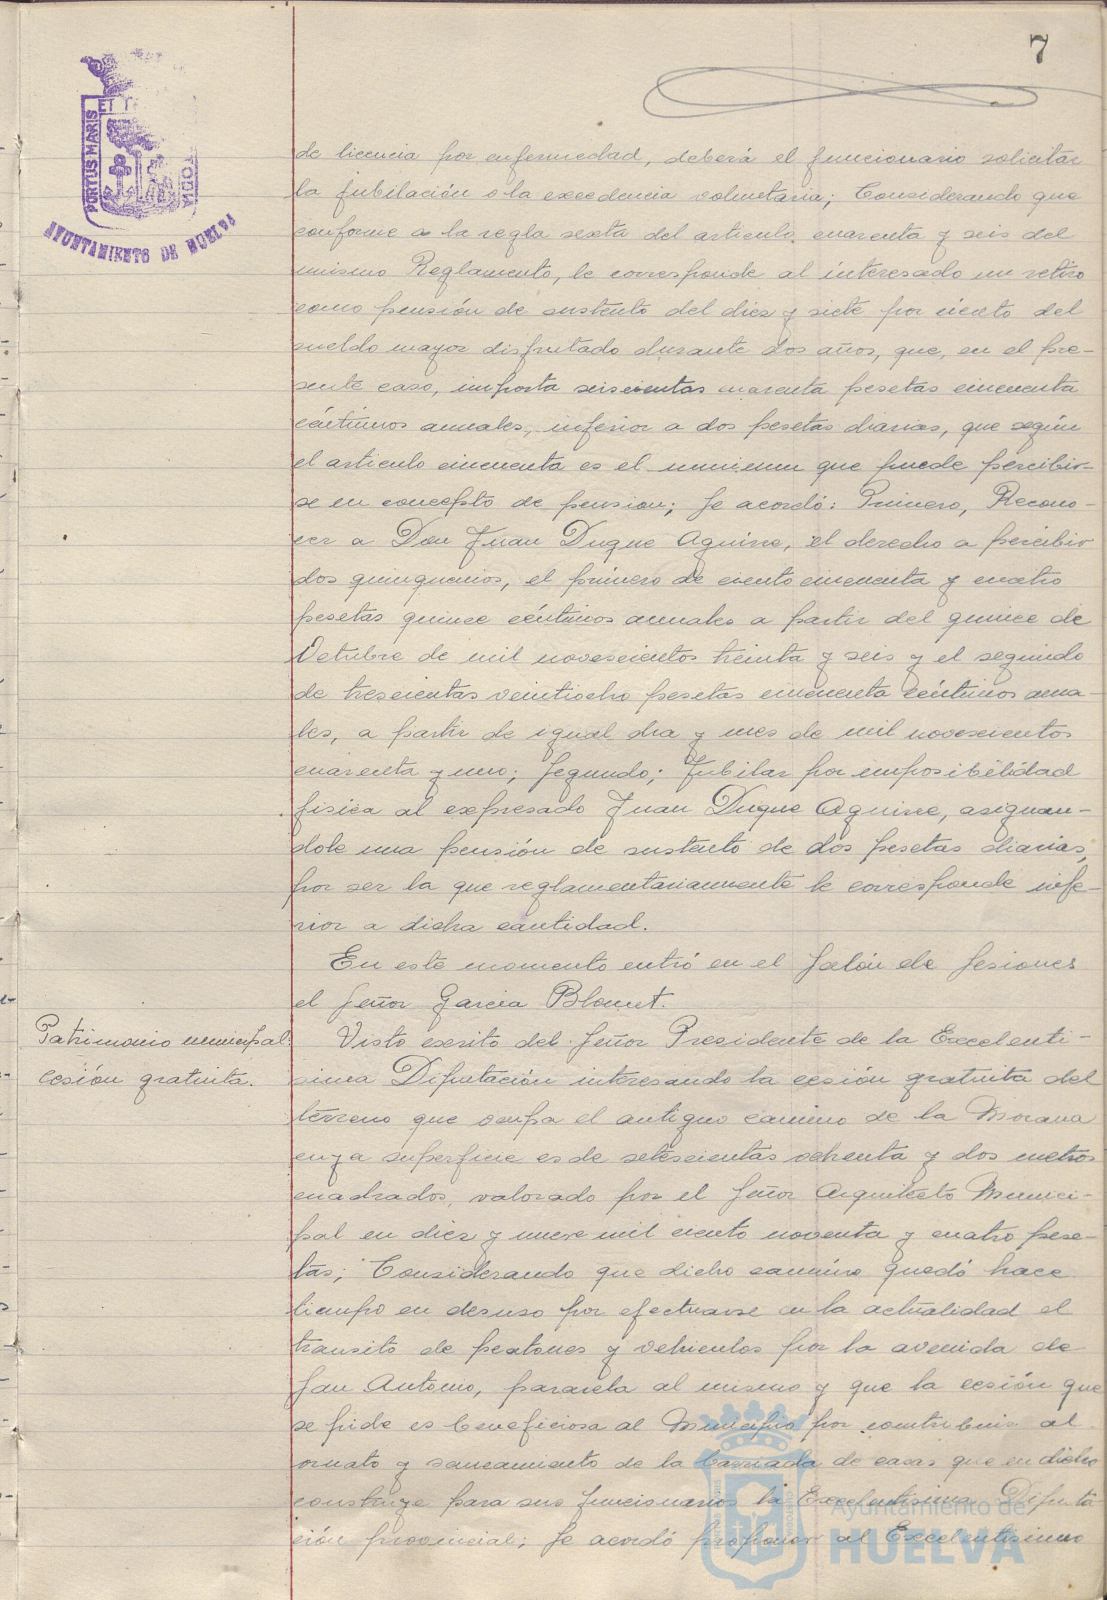 7
PORTUS MARIS
ET T
AYUNTAMIENTO DE HUELVA
de licencia por enfermedad, deberá el funcionario solicitar
la jubilación o la excedencia voluntaria; Considerando que
conforme a la regla sexta del articulo cuarenta y seis del
mismo Reglamento, le corresponde al interesado un retiro
como pensión de sustento del diez y siete por ciento del
sueldo mayor disfrutado durante dos años, que, en el pre-
sente caso, importa seiscientas cuarenta pesetas cincuenta
céntimos anuales, inferior a dos pesetas diarias, que según
el articulo cincuenta es el minimum que puede percibir-
se en concepto de pension; Se acordó: Primero, Recono-
cer a Don Juan Duque Aguirre, el derecho a percibir
dos quinquenios, el primero de ciento cincuenta y cuatro
pesetas quince céntimos anuales a partir del quince de
Octubre de mil novescientos treinta y seis y el segundo
de trescientas veintiocho pesetas cincuenta céntimos anua-
les, a partir de igual dia y mes de mil novescientos
cuarenta y uno; Segundo; Jubilar por imposibilidad
fisica al expresado Juan Duque Aguirre, asignan-
dole una pensión de sustento de dos pesetas diarias,
por ser la que reglamentariamente le corresponde infe-
rior a dicha cantidad.
En este momento entró en el Salón de Sesiones
el Señor Garcia
Patrimonio municipal.
cesión gratuita.
Visto escrito del Señor Presidente de la Excelenti-
sima Diputación interesando la cesión gratuita del
terreno que ocupa el antiguo camino de la Morana
cuya superficie es de setescientas ochenta y dos metros
cuadrados, valorado por el Señor Arquitecto Munici-
pal en diez y nueve mil ciento noventa y cuatro pese-
tas; Considerando que dicho camino quedó hace
tiempo en desuso por efectuarse en la actualidad el
transito de peatones y vehiculos por la avenida de
San Antonio, pararela al mismo y que la cesión que
se pide es beneficiosa al Municipio por contribuir al
ornato y saneamiento de la barriada de casas que en dicho
construye para sus funcionarios la Excelentisima Diputa-
ción provincial; Se acordó proponer al Excelentisimo
Ayuntamiento de
HUELVA